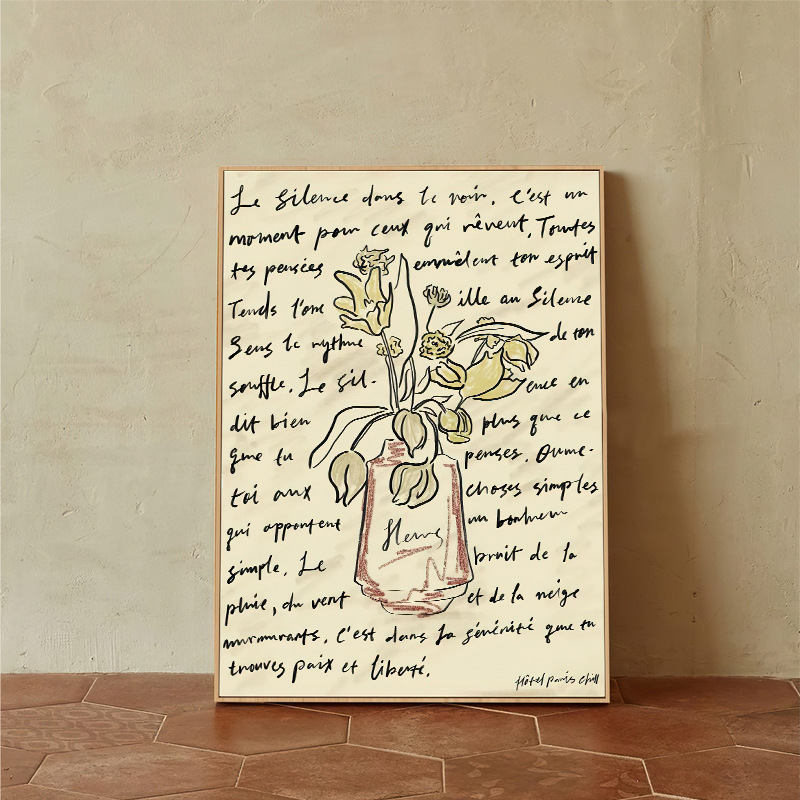 Le Silence dans le noir. C'est un
moment pour ceux qui rêvent. Toutes
tes pensées emmêlent ton esprit
Tends l'ore ille au Silence
Sens le rythme de ton
souffle. Le Sil- ence en
dit bien plus que ce
que tu penses. Oume-
toi aux choses simples
qui apportent un bonheur
simple. Le bruit de la
pluie, du vent et de la neige
murmurants. C'est dans la sérénité que tu
trouves paix et liberté.
fleurs
Hôtel Paris Chill